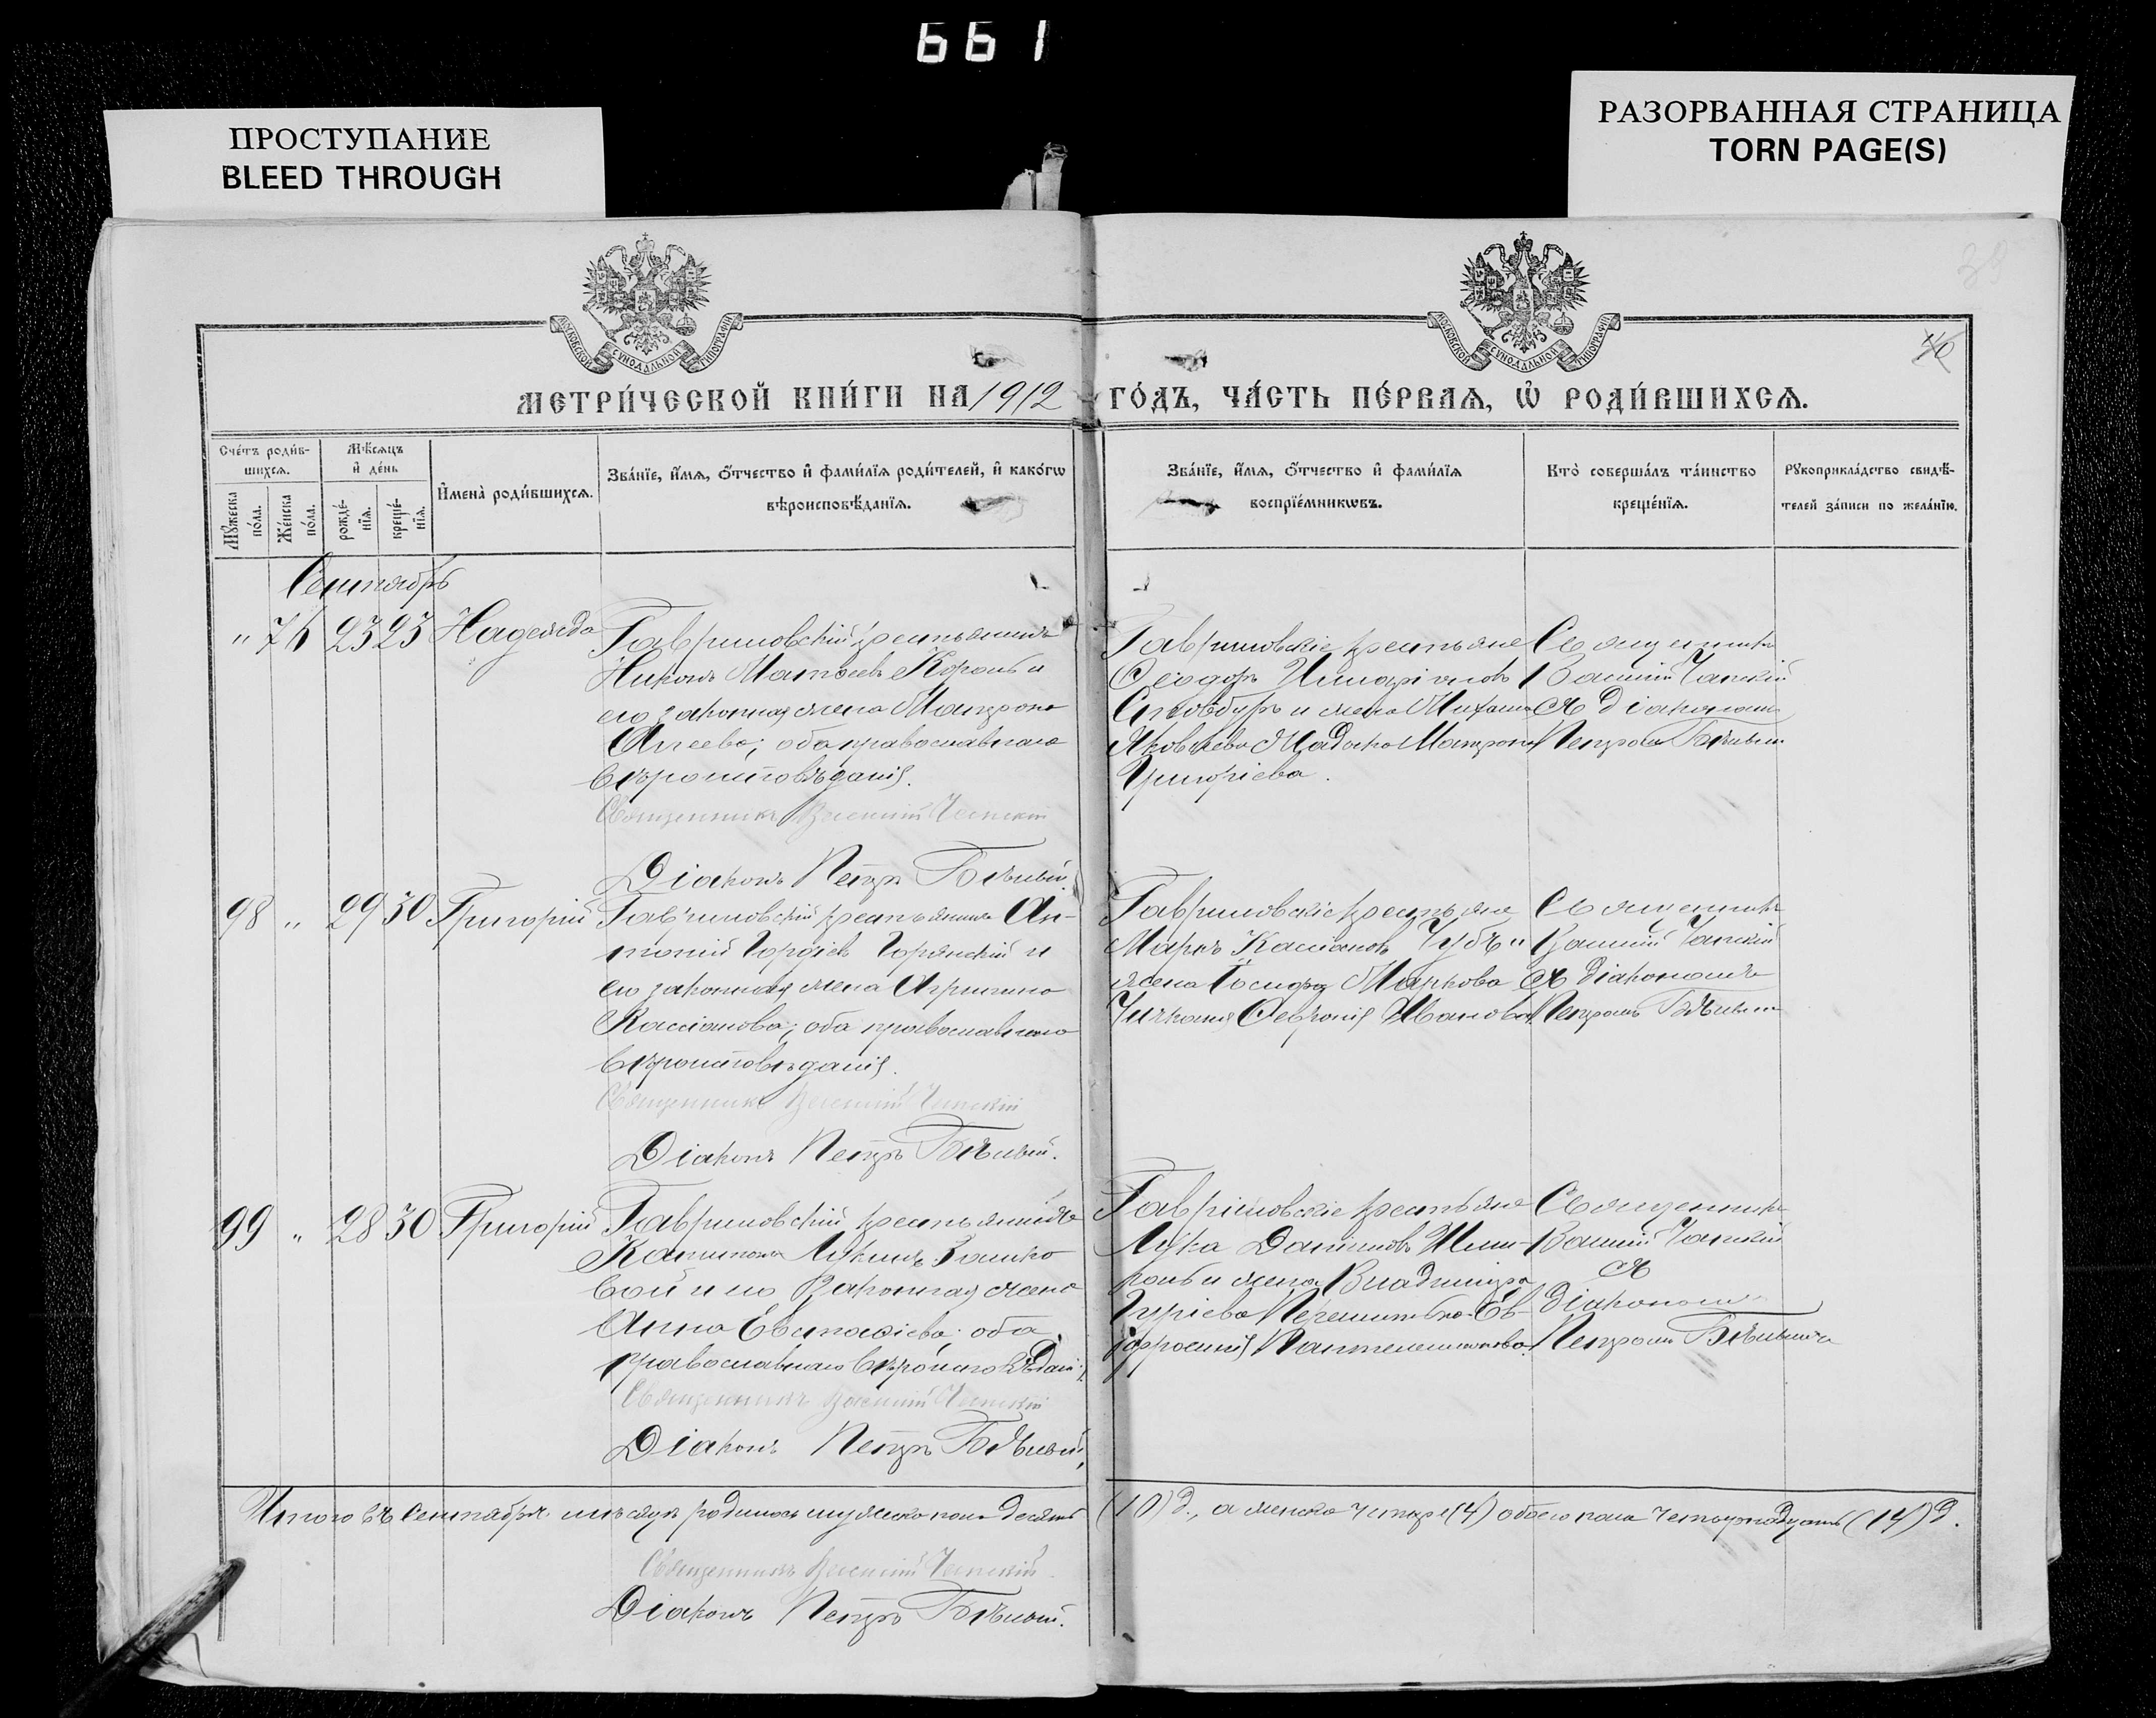 661
ПРОСТУПАНИЕ
BLEED THROUGH
РАЗОРВАННАЯ СТРАНИЦА
TORN PAGE(S)
МЕТРИ́ЧЕСКОЙ КНИ́ГИ НА 1912 ГО́ДЪ, ЧА́СТЬ ПЕ́РВАѦ, Ѡ҆ РОДИ́ВШИХСѦ.
Сче́тъ роди́вшихсѧ.
Мꙋ́жеска по́ла.
Же́нска по́ла.
Мѣ́сѧцъ и҆ де́нь
рожде́нїѧ.
креще́нїѧ.
И҆мена̀ роди́вшихсѧ.
Зва́нїе, и҆́мѧ, ѻ҆́тчество и҆ фами́лїѧ роди́телей, и҆ како́гѡ
вѣроисповѣ́данїѧ.
Зва́нїе, и҆́мѧ, ѻ҆́тчество и҆ фами́лїѧ
воспрїе́мникѡвъ.
Кто̀ соверша́лъ та́инство
креще́нїѧ.
Рꙋкоприкла́дство свидѣ́-
телей за́писи по жела́нїю.
Сентябрь
" 76 23 23 Надежда
Гавриловскій крестьянинъ
Никонъ Матѳеевъ Король и
его законная жена Матрона
Алексеева; оба православнаго
вѣроисповѣданія.
Священникъ Василій Чапскій
Діаконъ Петръ Бѣлый.
Гавриловскіе крестьяне
Ѳеодоръ
и жена
Яковлева Матрона
Григоріева.
Священникъ
Василій Чапскій
съ діакономъ
Петромъ Бѣлымъ
98 " 29 30 Григорій
Гавриловскій крестьянинъ Ан-
тоній Гордіевъ Горянскій и
его законная жена Агрипина
Кассіанова; оба православнаго
вѣроисповѣданія.
Священникъ Василій Чапскій
Діаконъ Петръ Бѣлый.
Гавриловскіе крестьяне
Маркъ Кассіановъ Чубъ и
жена Маркова
Февронія Иванова
Священникъ
Василій Чапскій
съ діакономъ
Петромъ Бѣлымъ
99 " 28 30 Григорій
Гавриловскій крестьянинъ
Капитонъ Лукинъ
и его законная жена
Анна Евстафіева; оба
православнаго вѣроисповѣданія.
Священникъ Василій Чапскій
Діаконъ Петръ Бѣлый.
Гавриловскіе крестьяне
Лука Даниловъ
и жена Владиміра
Гуріева Ев-
фросинія Пантелеимонова.
Священникъ
Василій Чапскій
съ
діакономъ
Петромъ Бѣлымъ
Итого въ сентябрѣ мѣсяцѣ родилось мужеска пола десять (10) д., а женска четыре (4) обоего пола четырнадцать (14) д.
Священникъ Василій Чапскій
Діаконъ Петръ Бѣлый.